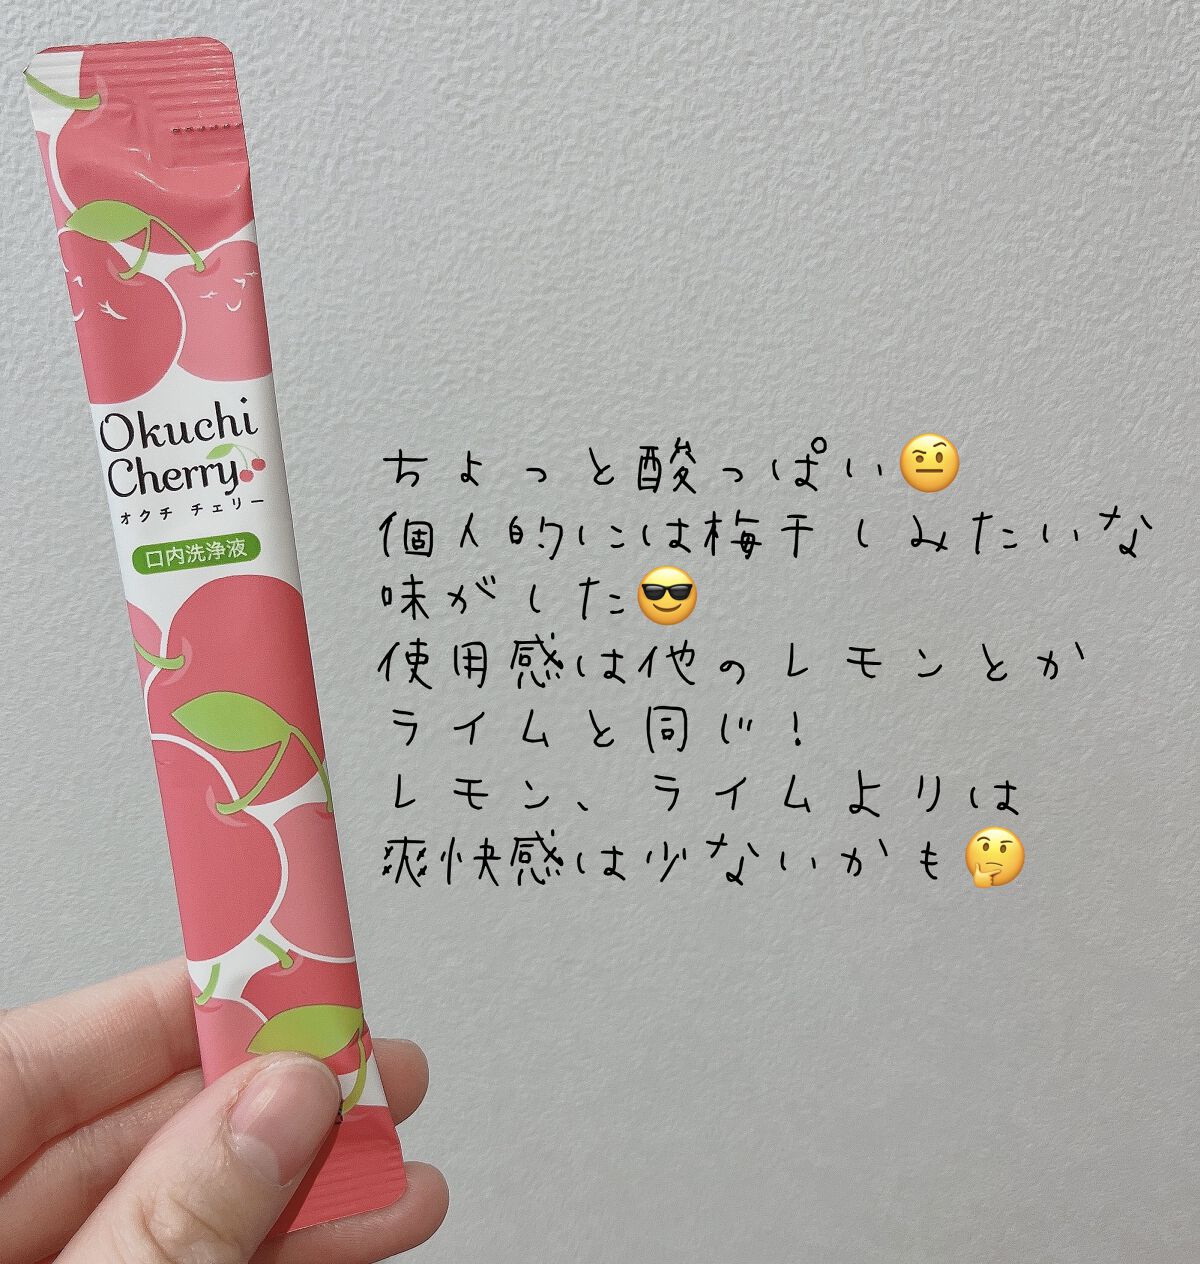 Okuchi
Cherry
オクチ チェリー
口内洗浄液
ちょっと酸っぱい🤨
個人的には梅干しみたいな
味がした😎
使用感は他のレモンとか
ライムと同じ!
レモン、ライムよりは
爽快感は少ないかも🤔